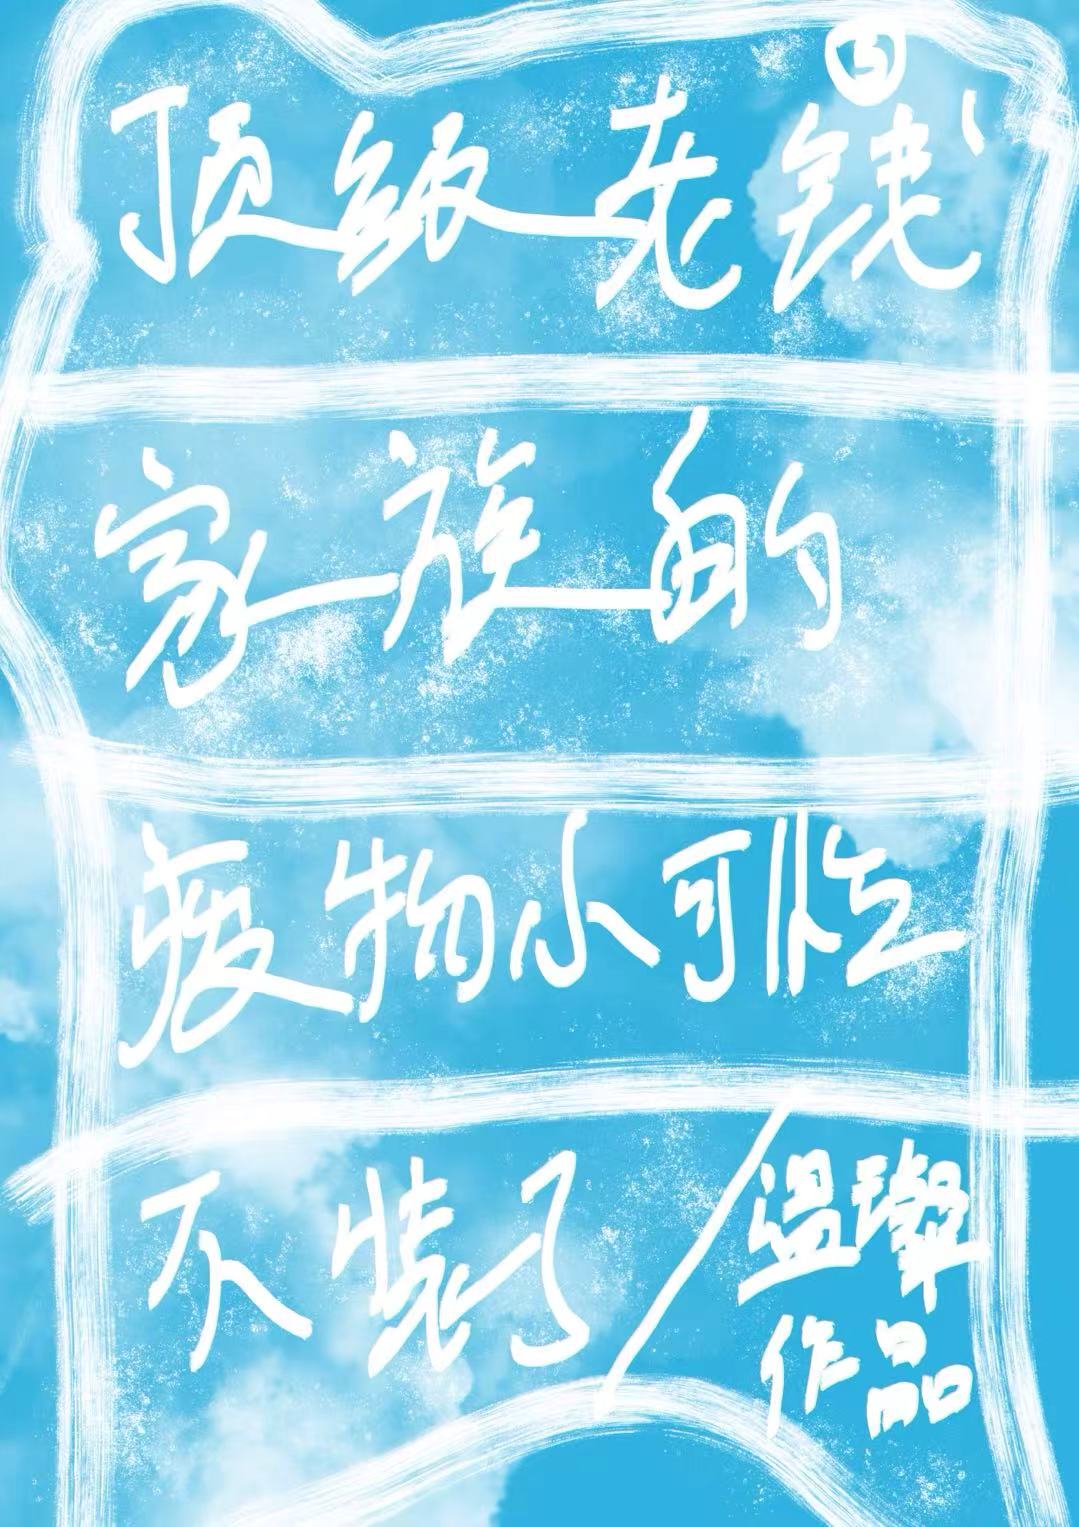 ⑤
顶级老钱
家族的
废物小可怜
不装了/温璨
作品